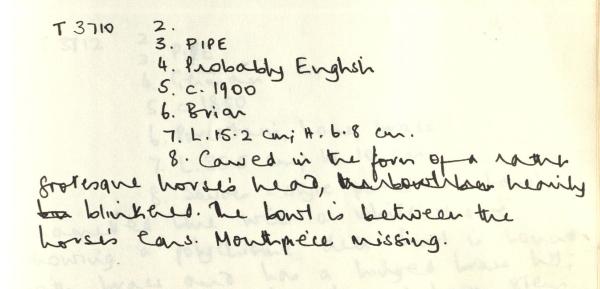 T 3710 2.
3. PIPE
4. Probably English
5. c. 1900
6. Briar
7. L. 15.2 cm; H. 6.8 cm.
8. Carved in the form of a rather
grotesque horse's head, heavily
blinkered. The bowl is between the
horse's ears. Mouthpiece missing.